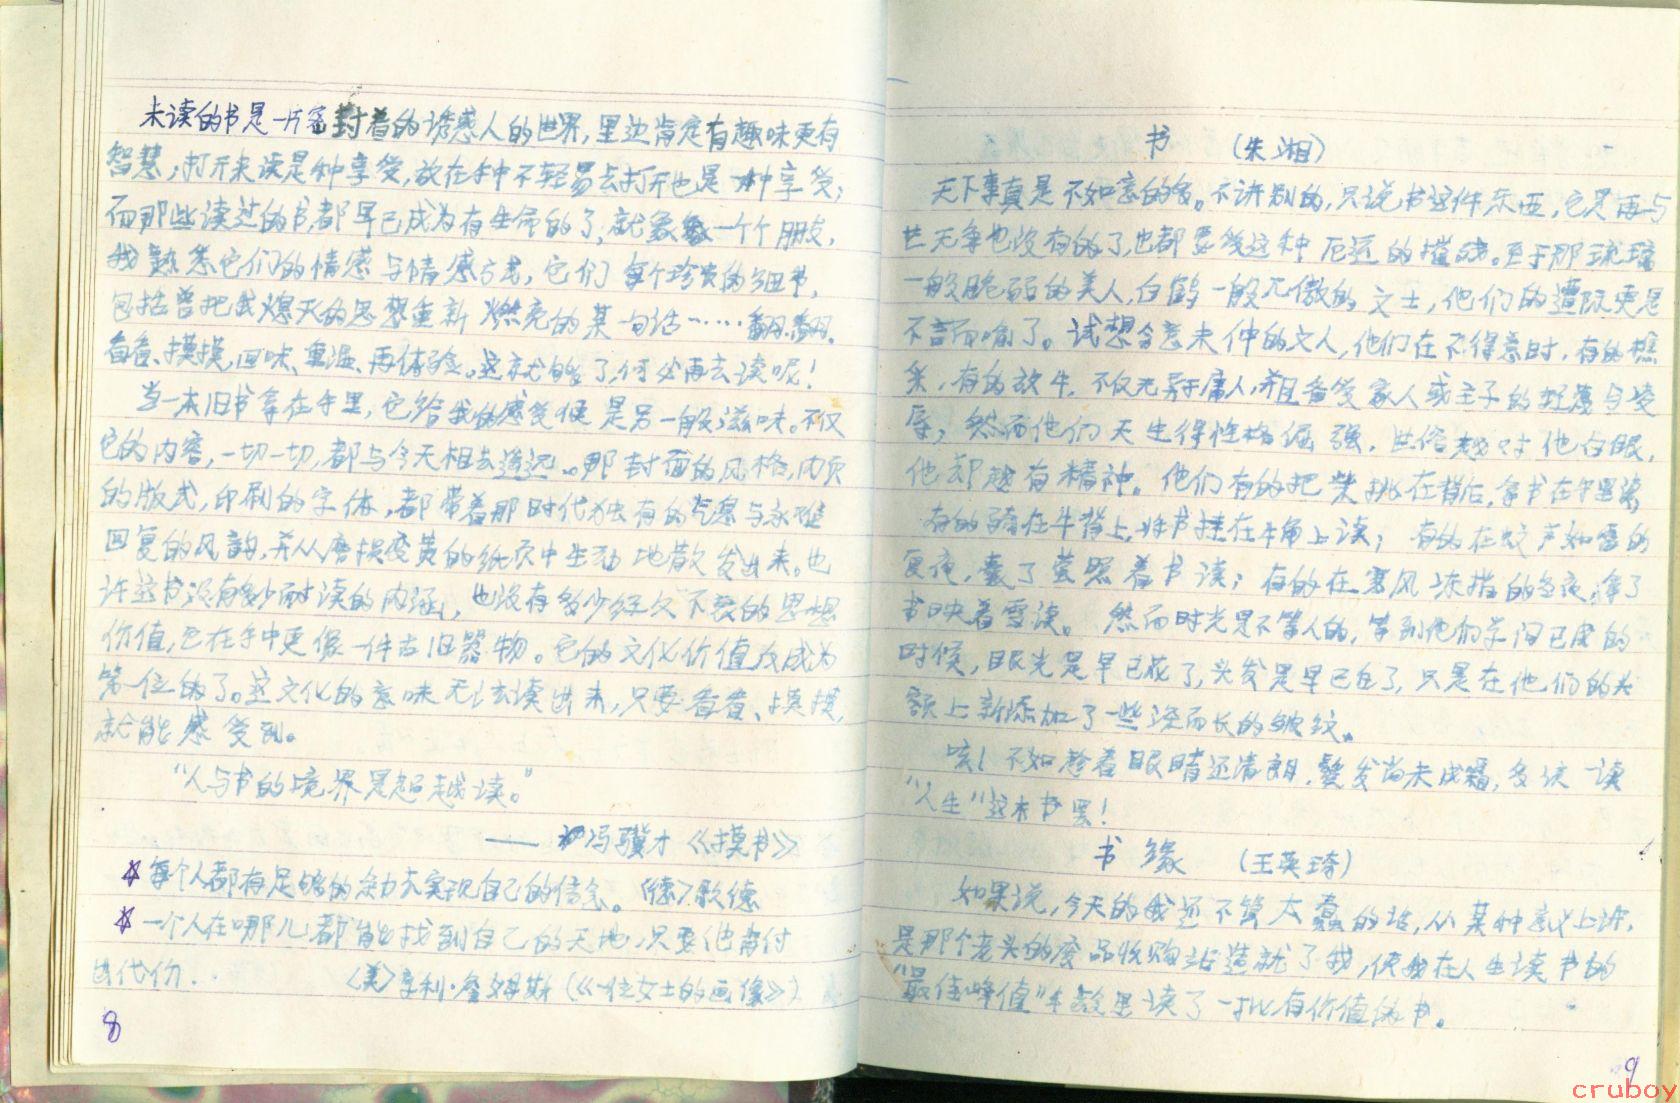 未读的书是一片密封着的诱惑人的世界,里边肯定有趣味更有
智慧,打开来读是种享受,放在手中不轻易去打开也是一种享受;
而那些读过的书,都早已成为有生命的了,就象一个个朋友,
我熟悉它们的情感与情感方式,它们每个珍贵的细节,
包括曾把我熄灭的思想重新燃亮的某一句话……翻翻、
看看、摸摸,回味、重温、再体验。这就够了,何必再去读呢!
当一本旧书拿在手里,它给我的感受便是另一般滋味。不仅
它的内容,一切一切,都与今天相去遥远。那封面的风格,内页
的版式,印刷的字体,都带着那时代独有的气息与永难
回复的风韵,并从磨损变黄的纸页中生动地散发出来。也
许这书没有多少耐读的内涵,也没有多少经久不衰的思想
价值,它在手中更像一件古旧器物。它的文化价值反成为
第一位的了。这文化的意味无法读出来,只要看看、摸摸,
就能感受到。
“人与书的境界是超越读。”
—— 冯骥才《摸书》
☆每个人都有足够的余力去实现自己的信念。〈德〉歌德
☆一个人在哪儿都能找到自己的天地,只要他肯付
出代价..   〈美〉亨利·詹姆斯(《一位女士的画像》)
8
书 (朱湘)
天下事真是不如意的多。不讲别的,只说书这件东西,它是再与
世无争也没有的了,也都要受这种厄运的摧残。至于那琉璃
一般脆弱的美人,白鹤一般兀傲的文士,他们的遭际更是
不言而喻了。试想含意未伸的文人,他们在不得意时,有的樵
采,有的放牛,不仅无异于庸人,并且备受家人或主子的轻蔑与凌
辱;然而他们天生得性格倔强,世俗越对他白眼,
他却越有精神。他们有的把柴挑在背后,拿书在手里读;
有的骑在牛背上,将书挂在牛角上读;有的在蚊声如雷的
夏夜,囊了萤照着书读;有的在寒风冻指的冬夜,拿了
书映着雪读。然而时光是不等人的,等到他们学问已成的
时候,眼光是早已花了,头发是早已白了,只是在他们的头
额上新添加了一些深而长的皱纹。
咳!不如趁着眼睛还清朗,鬓发尚未成霜,多读一读
“人生”这本书罢!
书缘 (王英琦)
如果说,今天的我还不算太蠢的话,从某种意义上讲,
是那个老头的废品收购站造就了我,使我在人生读书的
“最佳峰值”年龄里读了一批有价值的书。
9
cruboy